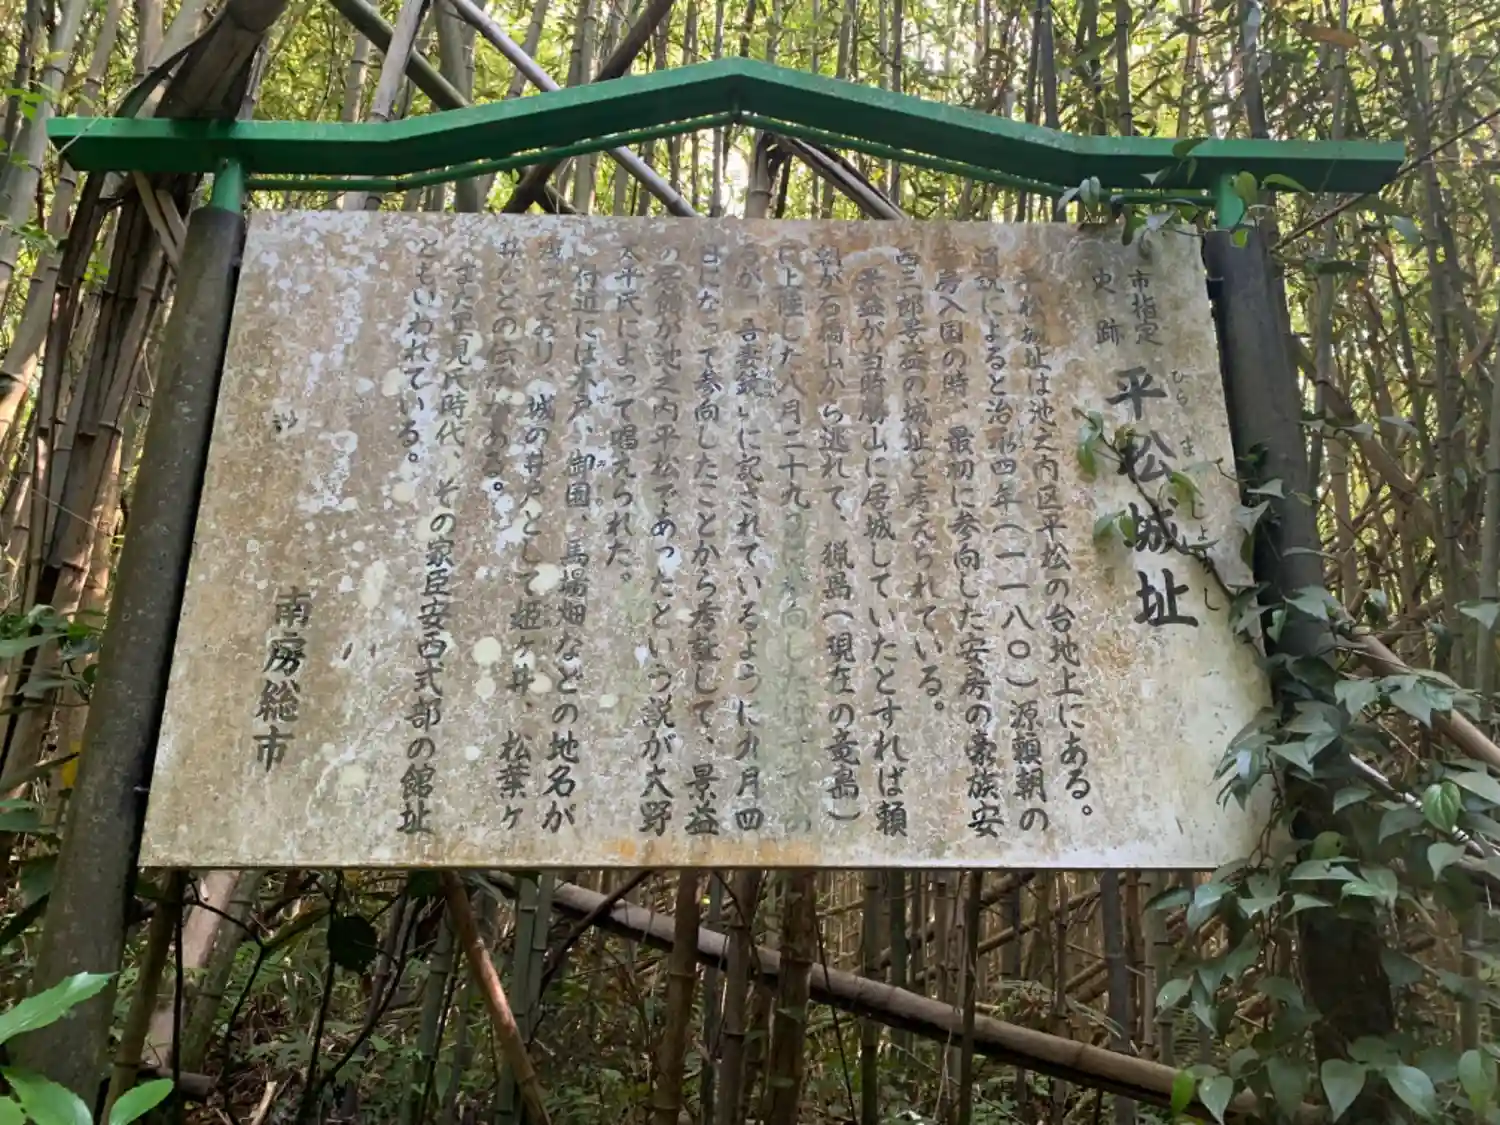 市指定
史跡
平松城址
ひらまつじょうし
平松城址は池之内区平松の台地上にある。
通説によると治承四年(一一八〇)源頼朝の
安房入国の時、最初に参向した安房の豪族安
西三郎景益の城址と考えられている。
景益が当時勝山に居城していたとすれば頼
朝が石橋山から逃れて、猟島(現在の竜島)
に上陸した八月二十九日に参向したはずでの
が「吾妻鏡」に記されているように九月四
日になって参向したことから考証して、景益
の居館が池之内平松であったという説が大野
太平氏によって唱えられた。
付近には木戸、御園、馬場畑などの地名が
残っており、城の井戸として姫ヶ井、松葉ヶ
井などの伝承がある。
また里見氏時代、その家臣安西式部の館址
ともいわれている。
南房総市